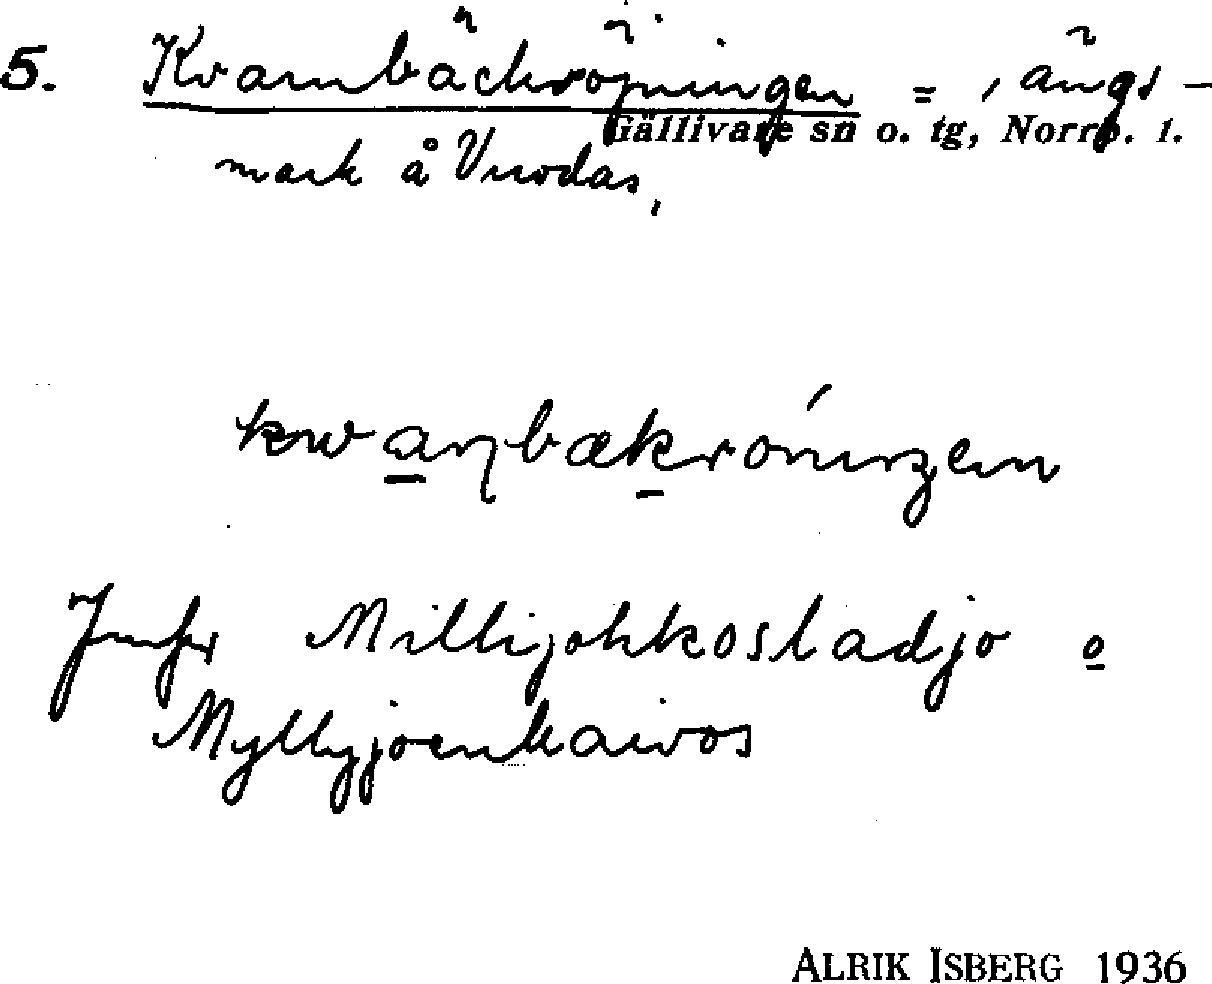 5. Kvarnbäckröjningen = , ängs-
Gällivare sn o. tg, Norrb. l.
mark å Vuodas,
Jmfr Millijohkosladjo o
Myllyjoenkaivos
ALRIK ISBERG 1936